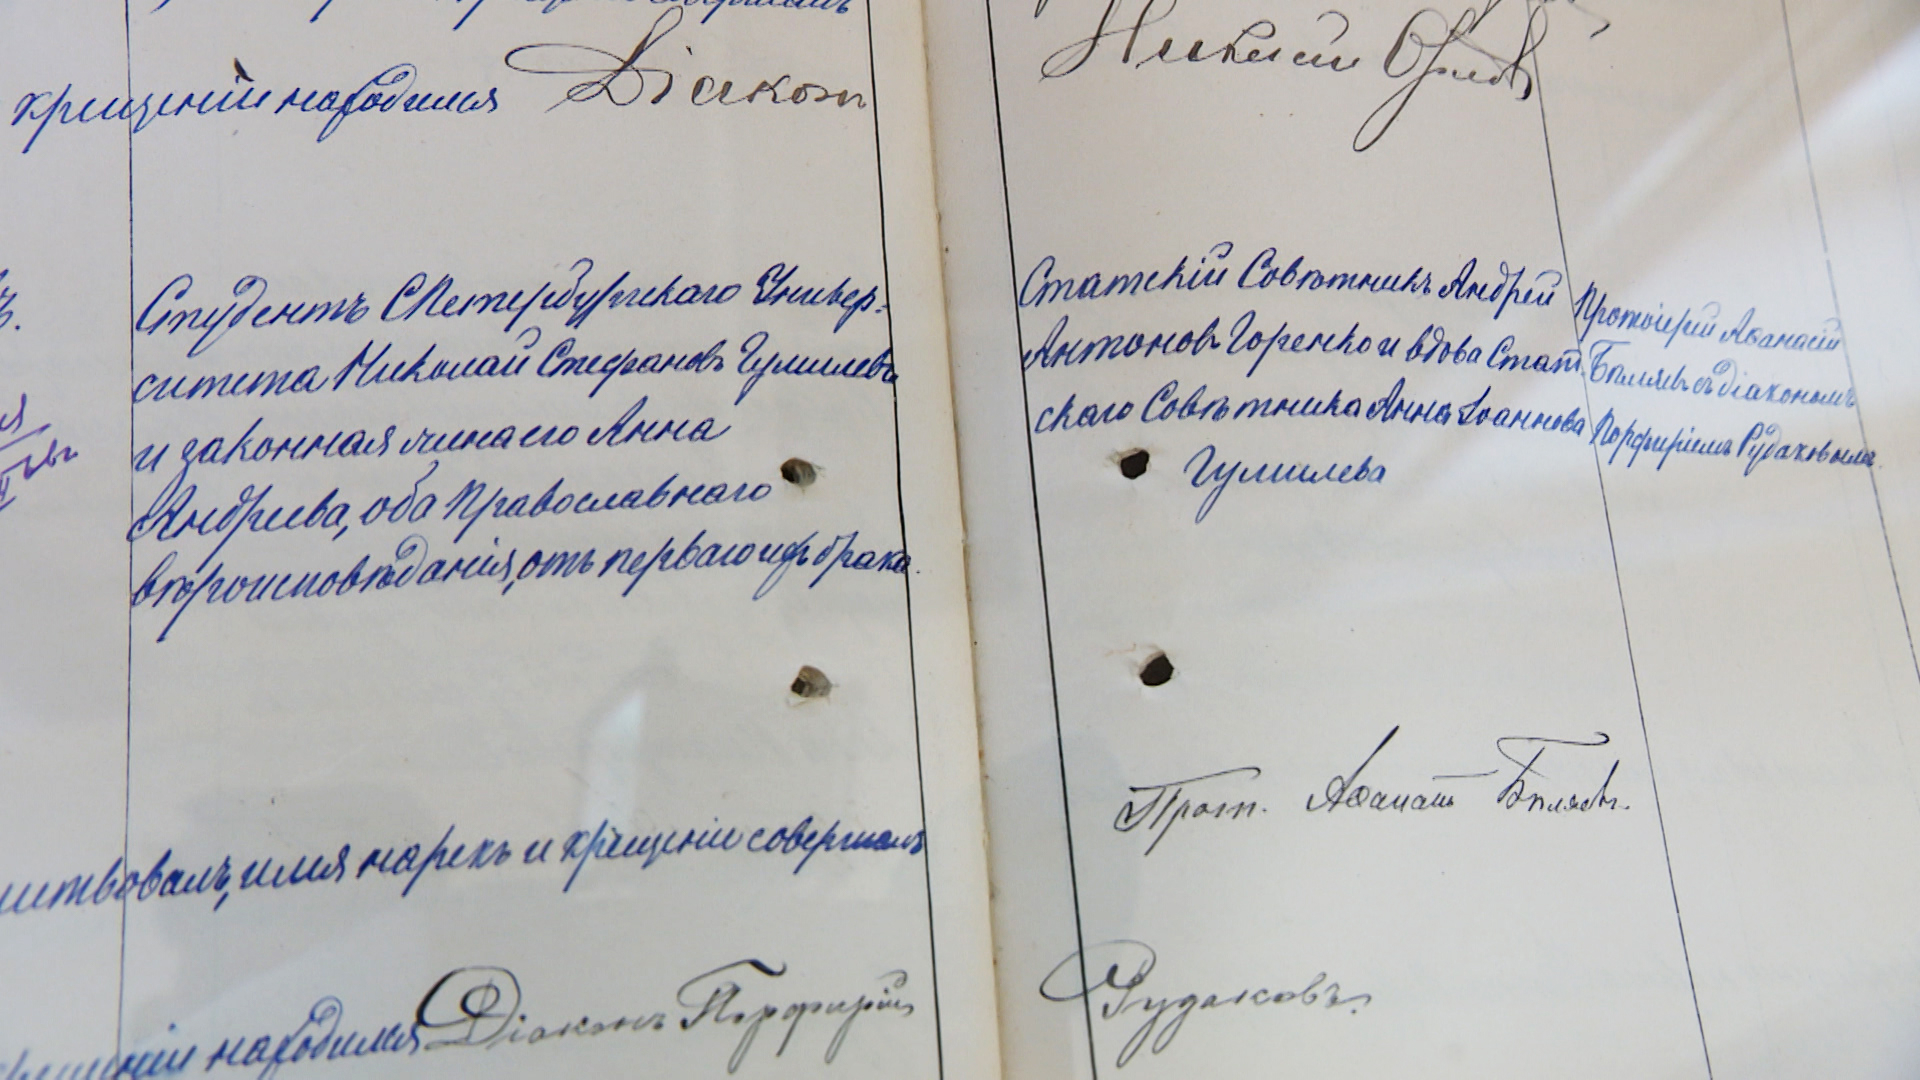 крещеніи находился Діаконъ
Студентъ СПетербургскаго Универ-
ситета Николай Стефановъ Гумилевъ
и законная жена его Анна
Андреева, оба Православнаго
вѣроисповѣданія, отъ перваго ихъ брака.
Статскій Совѣтникъ Андрей
Антоновъ Горенко и вдова Стат-
скаго Совѣтника Анна Іоаннова
Гумилева
Протоіерей Аѳанасій
Бѣляевъ съ діакономъ
Порфиріемъ Рудаковымъ.
Прот. Аѳанасій Бѣляевъ.
имя нарекъ и крещеніе совершалъ
крещеніи находился Діаконъ Порфирій
Рудаковъ.